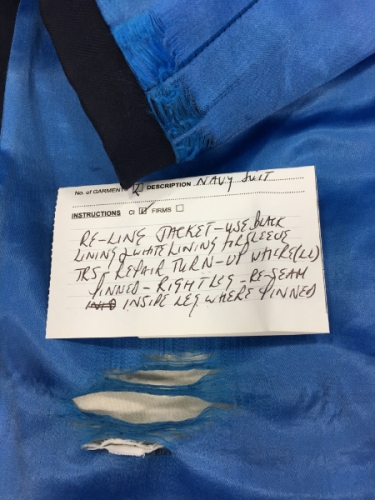 No. of GARMENTS 2 DESCRIPTION NAVY SUIT
INSTRUCTIONS CI FIRMS
RE-LINE JACKET - USE BLACK
LINING & WHITE LINING FOR SLEEVE
TRS REPAIR TURN-UP WHERE (LL)
PINNED - RIGHT LEG - RE-SEAM
INSIDE LEG WHERE PINNED